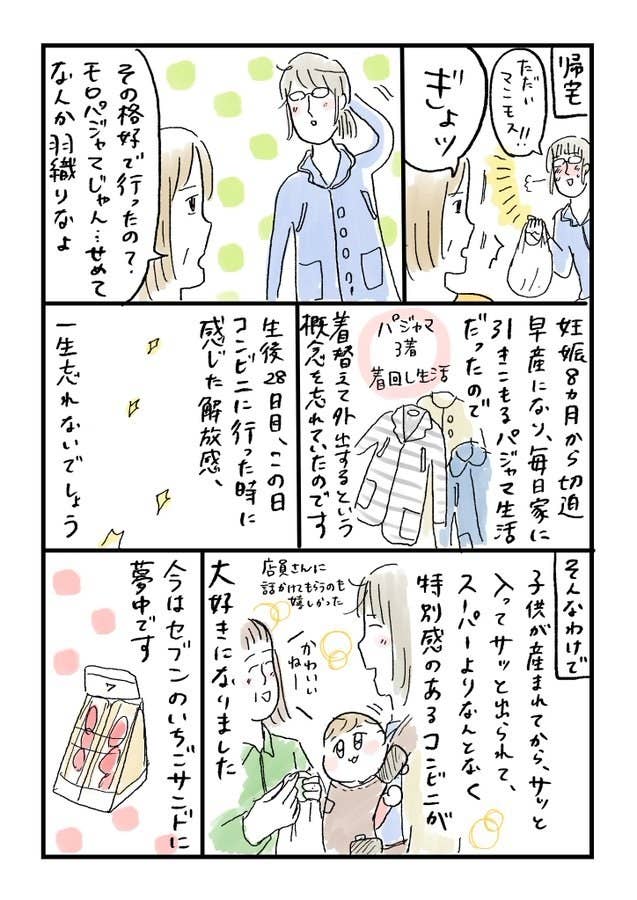 帰宅
ただい
マンモス!!
ぎょッ
その格好で行ったの?
モロパジャマじゃん…せめて
なんか羽織りなよ
妊娠8ヵ月から切迫
早産になり、毎日家に
引きこもるパジャマ生活
だったので
パジャマ
3着
着回し生活
着替えて外出するという
概念を忘れていたのです
生後28日目、この日
コンビニに行った時に
感じた解放感、
一生忘れないでしょう
そんなわけで
子供が産まれてから、サッと
入ってサッと出られて、
スーパーよりなんとなく
特別感のあるコンビニが
店員さんに
話かけてもらうのも
嬉しかった
かわいい
ねー
大好きになりました
今はセブンのいちごサンドに
夢中です